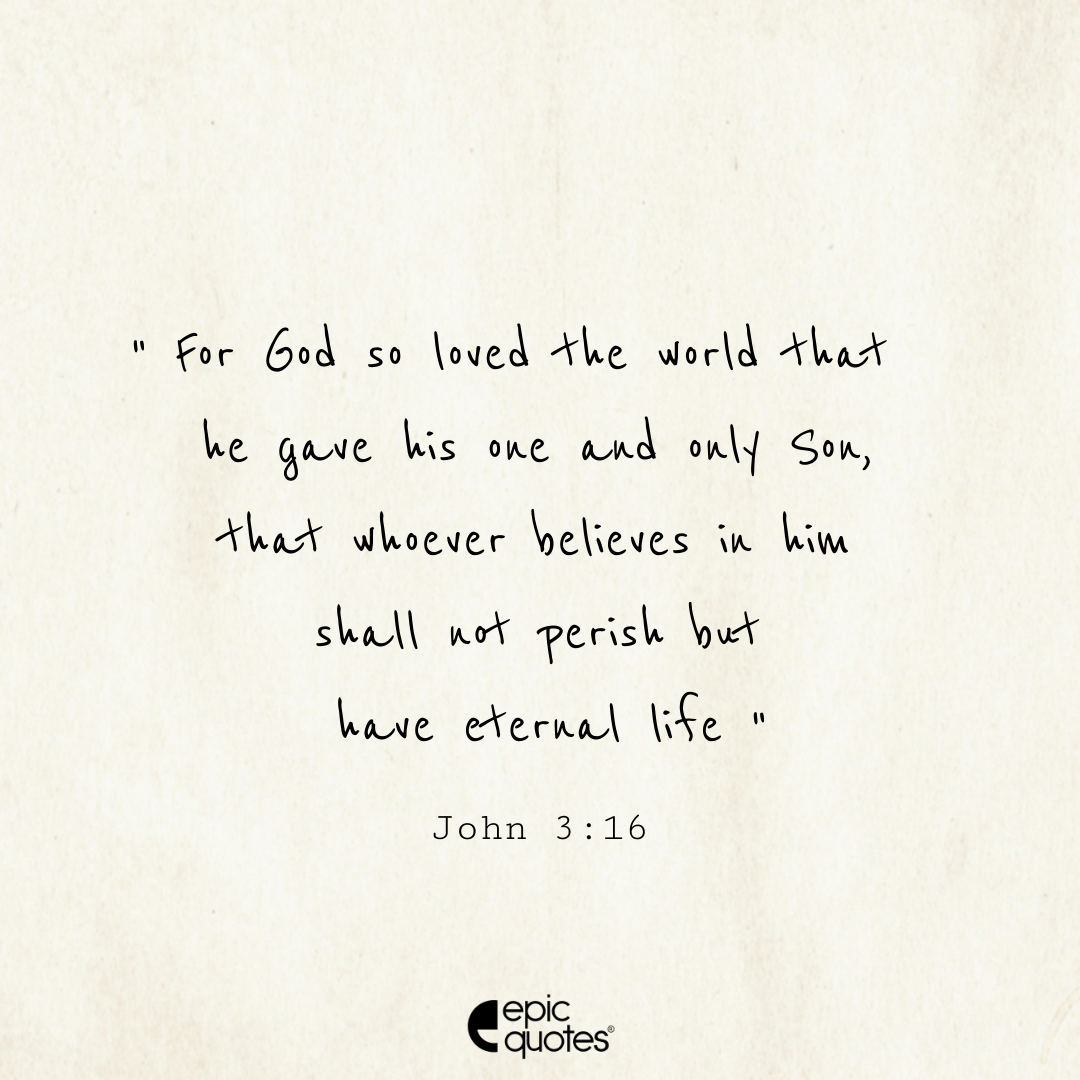 " For God so loved the world that
he gave his one and only Son,
that whoever believes in him
shall not perish but
have eternal life "
John 3:16
epic
quotes®